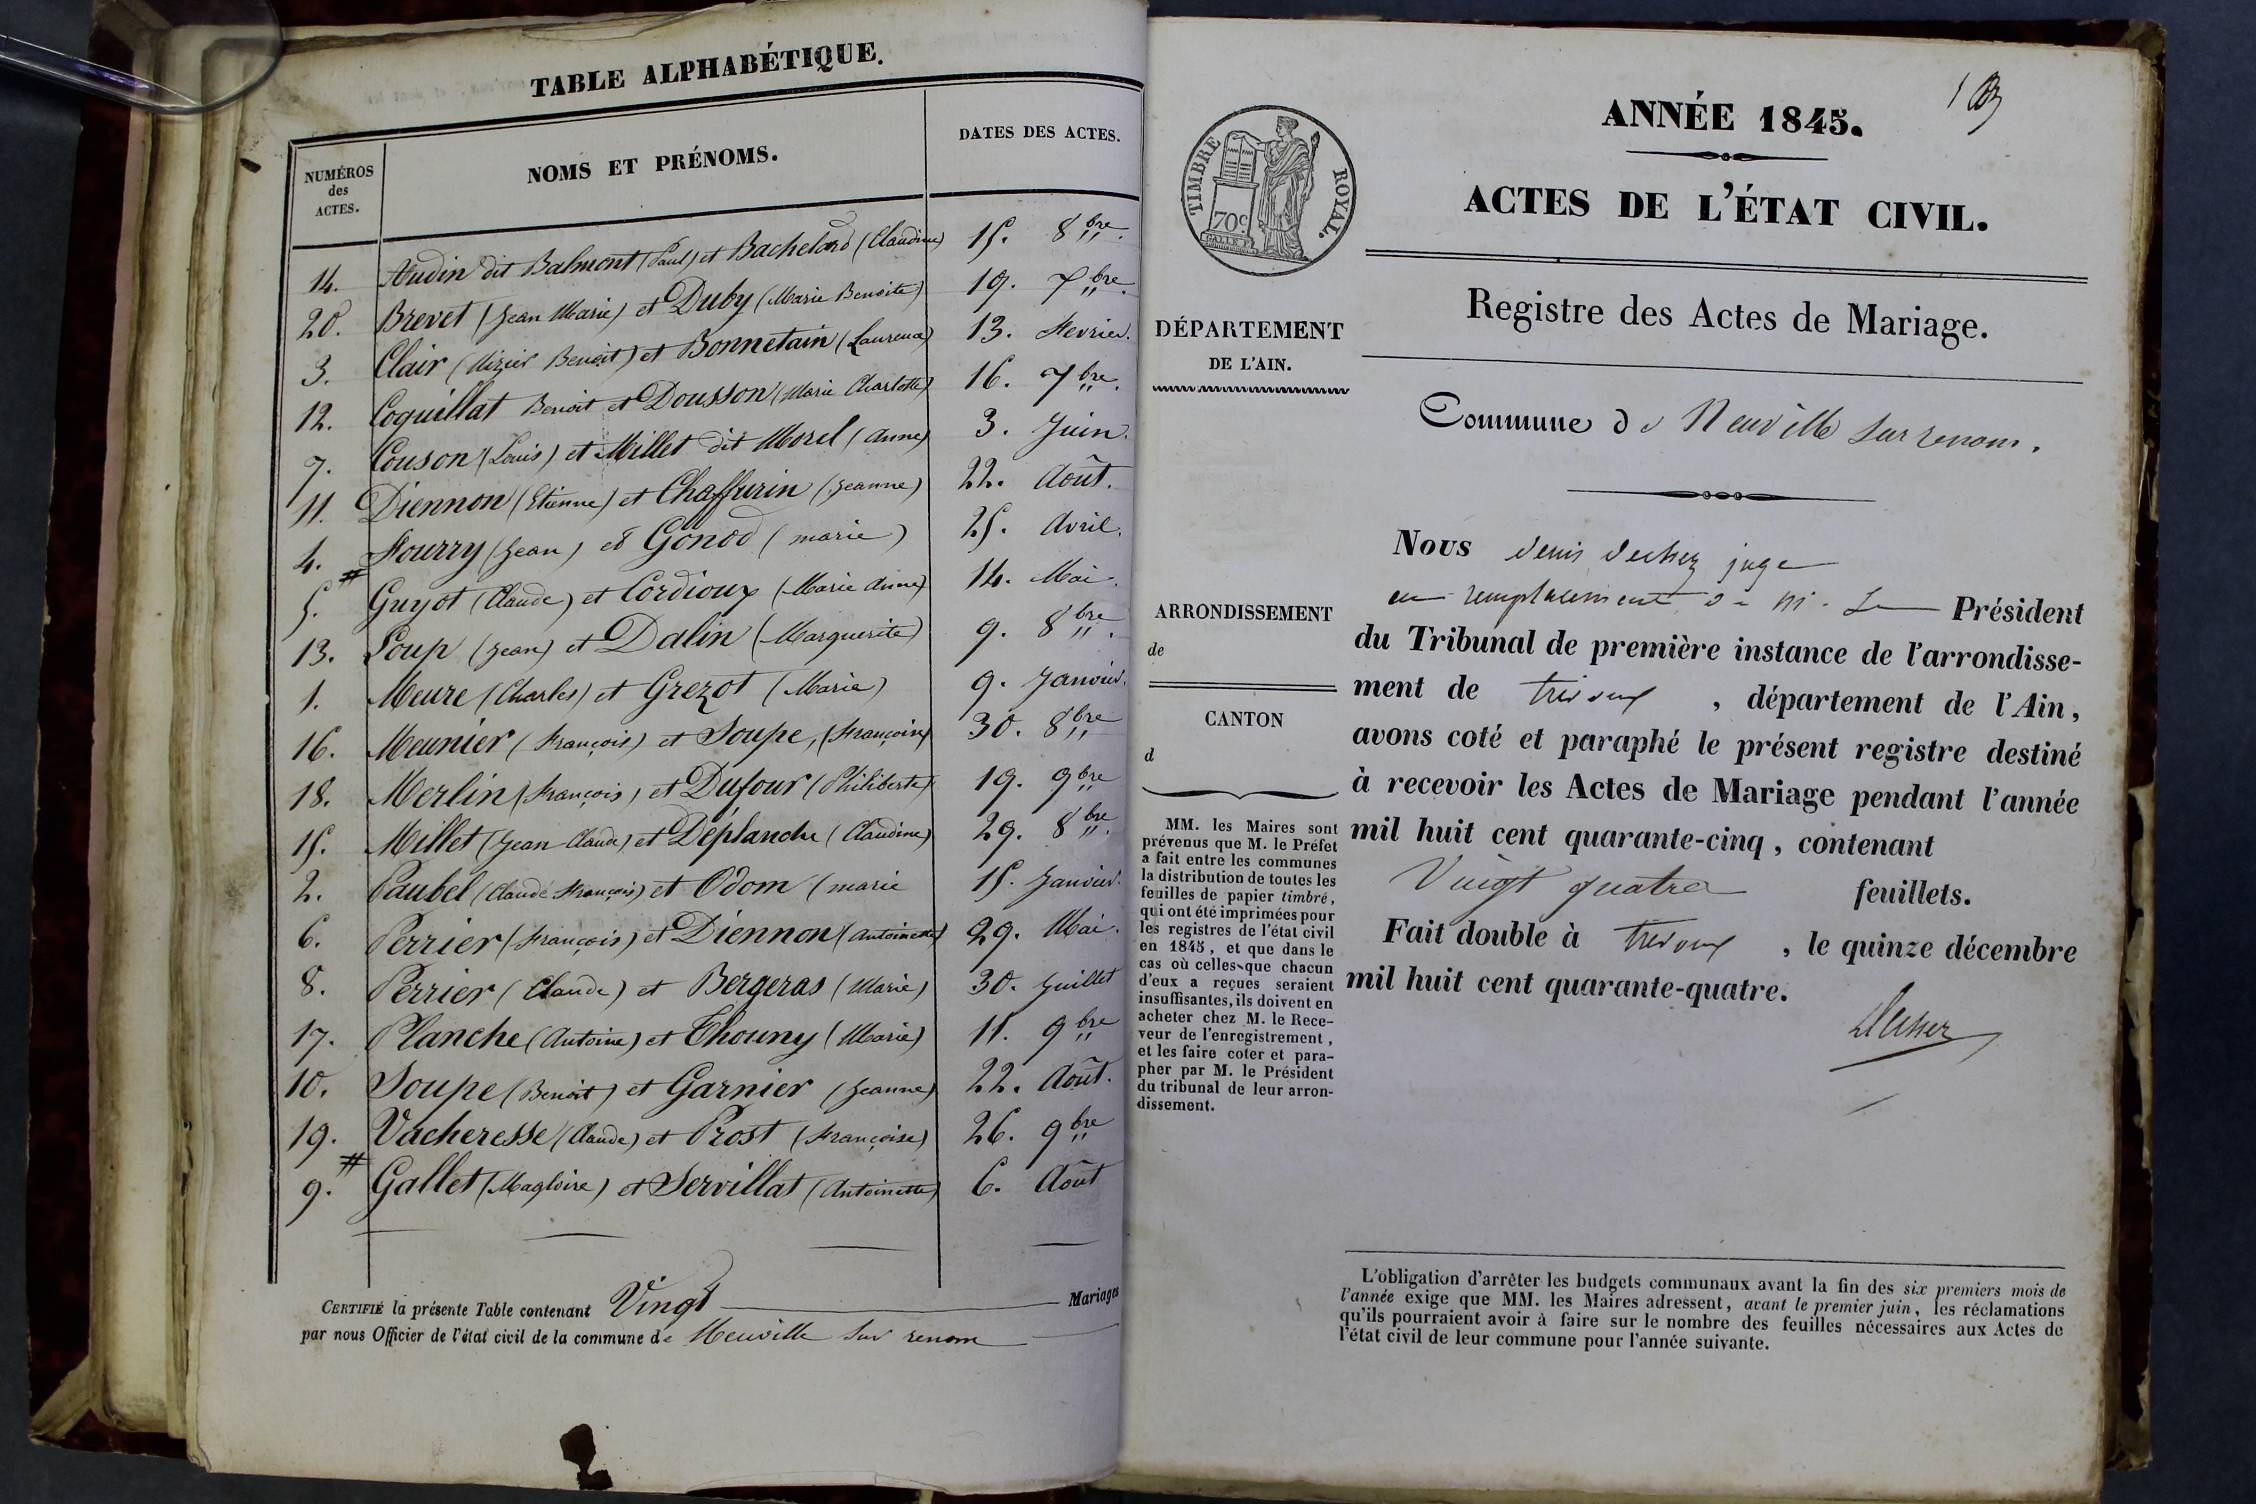 TABLE ALPHABÉTIQUE.
NUMÉROS
des
ACTES.
NOMS ET PRÉNOMS.
DATES DES ACTES.
14. Audin dit Balmont (Paul) et Bachelard (Claudine) 15. 8bre.
20. Brevet (Jean Marie) et Duby (Marie Benoite) 19. 7bre.
3. Clair (Nizier Benoit) et Bonnetain (Laurence) 13. Fevrier.
12. Coquillat Benoit et Dousson (Marie Charlotte) 16. 7bre.
7. Couson (Louis) et Millet dit Morel (Anne) 3. Juin.
11. Diennon (Etienne) et Chaffurin (Jeanne) 22. Août.
4. Fourry (Jean) et Gonod (marie) 25. Avril.
5. # Guyot (Claude) et Cordioux (Marie Anne) 14. Mai.
13. Loup (Jean) et Dalin (Marguerite) 9. 8bre.
1. Meure (Charles) et Grezot (Marie) 9. Janvier.
16. Meunier (François) et Soupe, (Françoise) 30. 8bre
18. Merlin (François) et Dufour (Philiberte) 19. 9bre
15. Millet (Jean Claude) et Déplanche (Claudine) 29. 8bre.
2. Paubel (Claude François) et Odom (marie 15. Janvier.
6. Perrier (François) et Diennon (Antoinette) 29. Mai.
8. Perrier (Claude) et Bergeras (Marie) 30. Juillet
17. Planche (Antoine) et Thouny (Marie) 11. 9bre
10. Soupe (Benoit) et Garnier (Jeanne) 22. Août.
19. Vacheresse (Claude) et Prost (Françoise) 26. 9bre
9. # Gallet (Magloire) et Servillat (Antoinette) 6. Août
CERTIFIÉ la présente Table contenant Vingt Mariages
par nous Officier de l'état civil de la commune de Neuville sur renom
1
ANNÉE 1845.
TIMBRE ROYAL.
70c
ACTES DE L'ÉTAT CIVIL.
Registre des Actes de Mariage.
DÉPARTEMENT
DE L'AIN.
Commune de Neuville sur renom.
ARRONDISSEMENT
de
CANTON
d
MM. les Maires sont
prévenus que M. le Préfet
a fait entre les communes
la distribution de toutes les
feuilles de papier timbré,
qui ont été imprimées pour
les registres de l'état civil
en 1845, et que dans le
cas où celles que chacun
d'eux a reçues seraient
insuffisantes, ils doivent en
acheter chez M. le Rece-
veur de l'enregistrement,
et les faire coter et para-
pher par M. le Président
du tribunal de leur arron-
dissement.
Nous denis juge
en remplacement de M. Le Président
du Tribunal de première instance de l'arrondisse-
ment de trevoux , département de l'Ain,
avons coté et paraphé le présent registre destiné
à recevoir les Actes de Mariage pendant l'année
mil huit cent quarante-cinq, contenant
Vingt quatre feuillets.
Fait double à trevoux , le quinze décembre
mil huit cent quarante-quatre.
L'obligation d'arrêter les budgets communaux avant la fin des six premiers mois de
l'année exige que MM. les Maires adressent, avant le premier juin, les réclamations
qu'ils pourraient avoir à faire sur le nombre des feuilles nécessaires aux Actes de
l'état civil de leur commune pour l'année suivante.